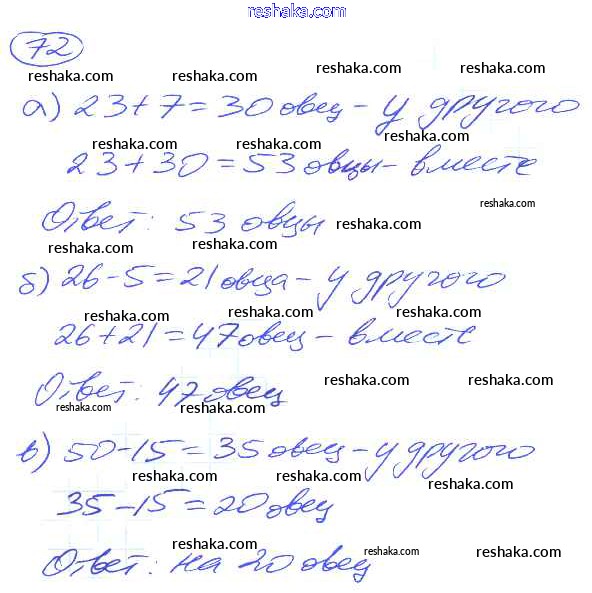 reshaka.com
72
reshaka.com reshaka.com reshaka.com reshaka.com
а) 23+7=30 овец - у другого
reshaka.com reshaka.com
23+30=53 овцы - вместе
reshaka.com
Ответ: 53 овцы reshaka.com
reshaka.com reshaka.com
б) 26-5=21 овца - у другого
reshaka.com reshaka.com
26+21=47 овец - вместе
reshaka.com reshaka.com
Ответ: 47 овец
reshaka.com reshaka.com
в) 50-15=35 овец - у другого
reshaka.com reshaka.com reshaka.com
35-15=20 овец
reshaka.com reshaka.com reshaka.com
Ответ: на 20 овец